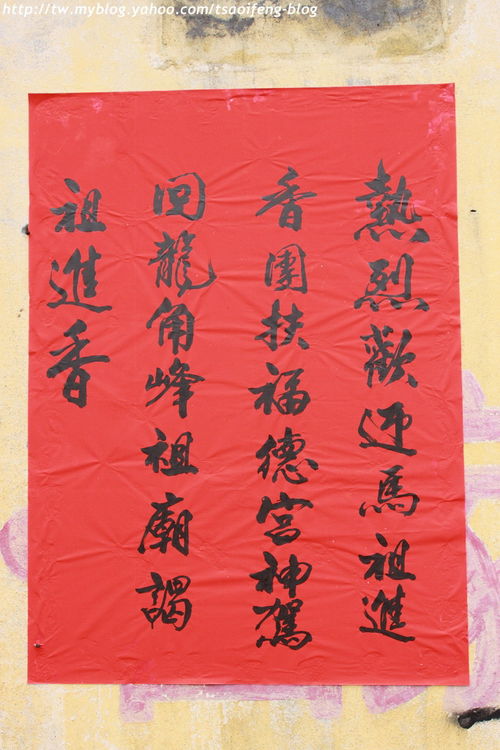 http://tw.myblog.yahoo.com/tsaoifeng-blog
熱烈歡迎馬祖進
香團扶福德宮神駕
回龍角峰祖廟謁
祖進香